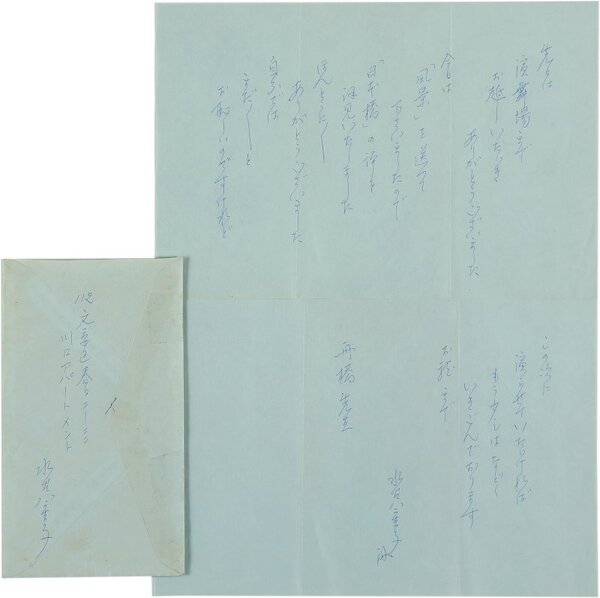 先日は
演舞場まで
お越しいただき
ありがとうございました
今日は
「風景」を送って
下さいましたので
「日本橋」の評を
拝見いたしました
ほんとうに
ありがとうございました
自分では
まだ〳〵と
お恥しいのですけれど
この次に
演らせていただければ
もう少しはなどと
いきごんでおります
お礼まで
水谷八重子
舟橋先生
112 文京区春日二ー
川口アパートメント
水谷八重子